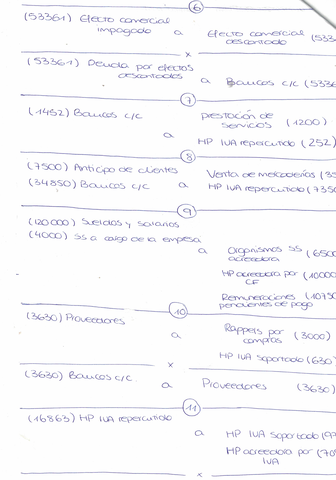 6
(53361) Efecto comercial
impagado a Efecto comercial (533
descontado
x
(53361) Deuda por efectos
descontados a Bancos c/c (5336
7
(1452) Bancos c/c prestación de
servicios (1200)
a HP IUA repercutido (252)
8
(7500) Anticipo de clientes Venta de mercaderías (35
(34850) Bancos c/c a HP IUA repercutido (7350
9
(120000) Sueldos y salarios
(4000) SS a cargo de la empresa
a Organismos SS (6500
acreedora
HP acreedora por (10000
CF
Remuneraciones (10750
pendientes de pago
10
(3630) Proveedores
a Rappels por (3000)
compras
HP IUA soportado (630)
x
(3630) Bancos c/c.
a Proveedores (3630)
11
(16863) HP IUA repercutido
a HP IUA soportado (99
HP acreedora por (70
IUA
x